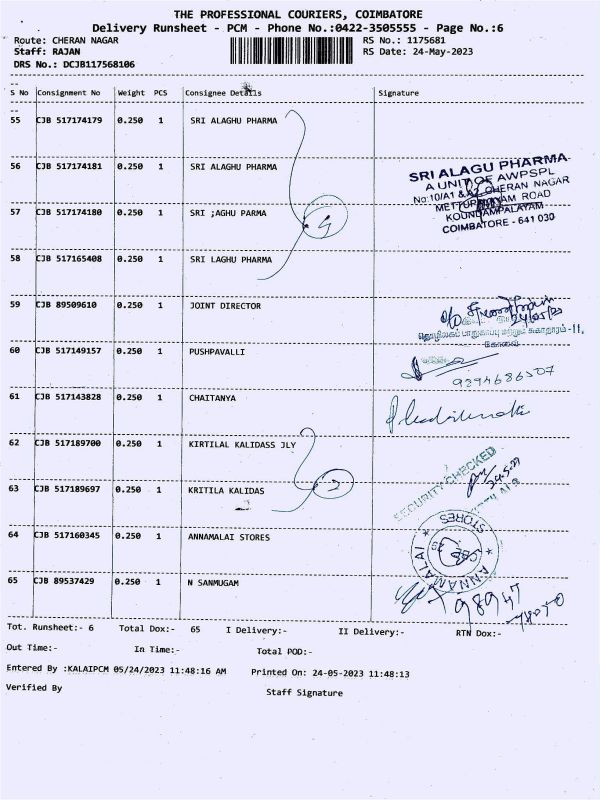 THE PROFESSIONAL COURIERS, COIMBATORE
Delivery Runsheet - PCM - Phone No.:0422-3505555 - Page No.:6
Route: CHERAN NAGAR RS No.: 1175681
Staff: RAJAN RS Date: 24-May-2023
DRS No.: DCJB117568106
S No Consignment No Weight PCS Consignee Details Signature
55 CJB 517174179 0.250 1 SRI ALAGHU PHARMA
56 CJB 517174181 0.250 1 SRI ALAGHU PHARMA
SRI ALAGU PHARMA
A UNIT OF AWPSPL
No:10/A1 & A2, CHERAN NAGAR
METTUPALAYAM ROAD
KOUNDAMPALAYAM
COIMBATORE - 641 030
57 CJB 517174180 0.250 1 SRI ;AGHU PARMA 4
58 CJB 517165408 0.250 1 SRI LAGHU PHARMA
59 CJB 89509610 0.250 1 JOINT DIRECTOR
24/05/23
தொழிலகப் பாதுகாப்பு மற்றும் சுகாதாரம்-II,
கோவை
60 CJB 517149157 0.250 1 PUSHPAVALLI
9394686507
61 CJB 517143828 0.250 1 CHAITANYA
62 CJB 517189700 0.250 1 KIRTILAL KALIDASS JLY
SECURITY CHECKED
24.5.23
63 CJB 517189697 0.250 1 KRITILA KALIDAS 2
64 CJB 517160345 0.250 1 ANNAMALAI STORES
ANNAMALAI STORES
CBE
65 CJB 89537429 0.250 1 N SANMUGAM
98947
Tot. Runsheet:- 6 Total Dox:- 65 I Delivery:- II Delivery:- RTN Dox:-
Out Time:- In Time:- Total POD:-
Entered By :KALAIPCM 05/24/2023 11:48:16 AM Printed On: 24-05-2023 11:48:13
Verified By Staff Signature